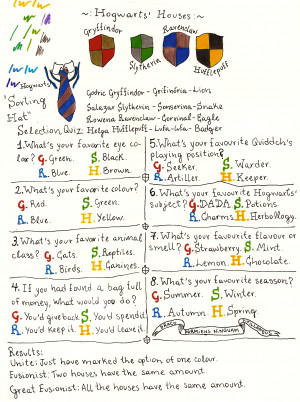 ~:Hogwarts' Houses:~
Gryffindor
Slytherin
Ravenclaw
Hufflepuff
Hogwarts
"Sorting
Hat"
Selection Quiz:
Godric Gryffindor - Grifinória - Lion
Salazar Slytherin - Sonserina - Snake
Rowena Ravenclaw - Corvinal - Eagle
Helga Hufflepuff - Lufa-Lufa - Badger
1. What's your favorite eye co-
lor? G. Green. S. Black.
R. Blue. H. Brown.
2. What's your favorite colour?
G. Red. S. Green.
R. Blue. H. Yellow.
3. What's your favorite animal
class? G. Cats. S. Reptiles.
R. Birds. H. Canines.
4. If you had found a bag full
of money, what would you do?
G. You'd give back S. You'd spend it.
R. You'd keep it. H. You'd leave it.
5. What's your favorite Quidditch's
playing position?
G. Seeker. S. Warder.
R. Artiller. H. Keeper.
6. What's your favourite Hogwarts'
subject? G. DADA. S. Potions.
R. Charms H. Herbology.
7. What's your favourite flavour or
smell? G. Strawberry. S. Mint.
R. Lemon. H. Chocolate.
8. What's your favourite seasson?
G. Summer. S. Winter.
R. Autumn. H. Spring
DRACO DORMIENS NUNQUAM TITILLANDUS
Results:
Unite: Just have marked the option of one colour.
Fusionist: Two houses have the same amount.
Great Fusionist: All the houses have the same amount.